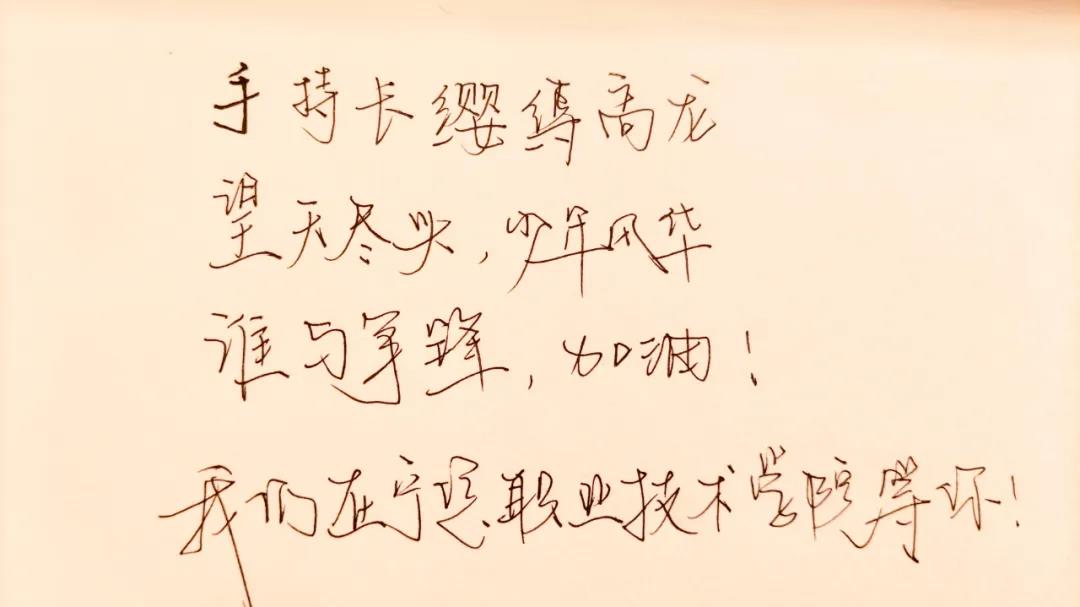 手持长缨缚高龙
望天尽头，少年风华
谁与争锋，加油！
我们在宁德职业技术学院等你！